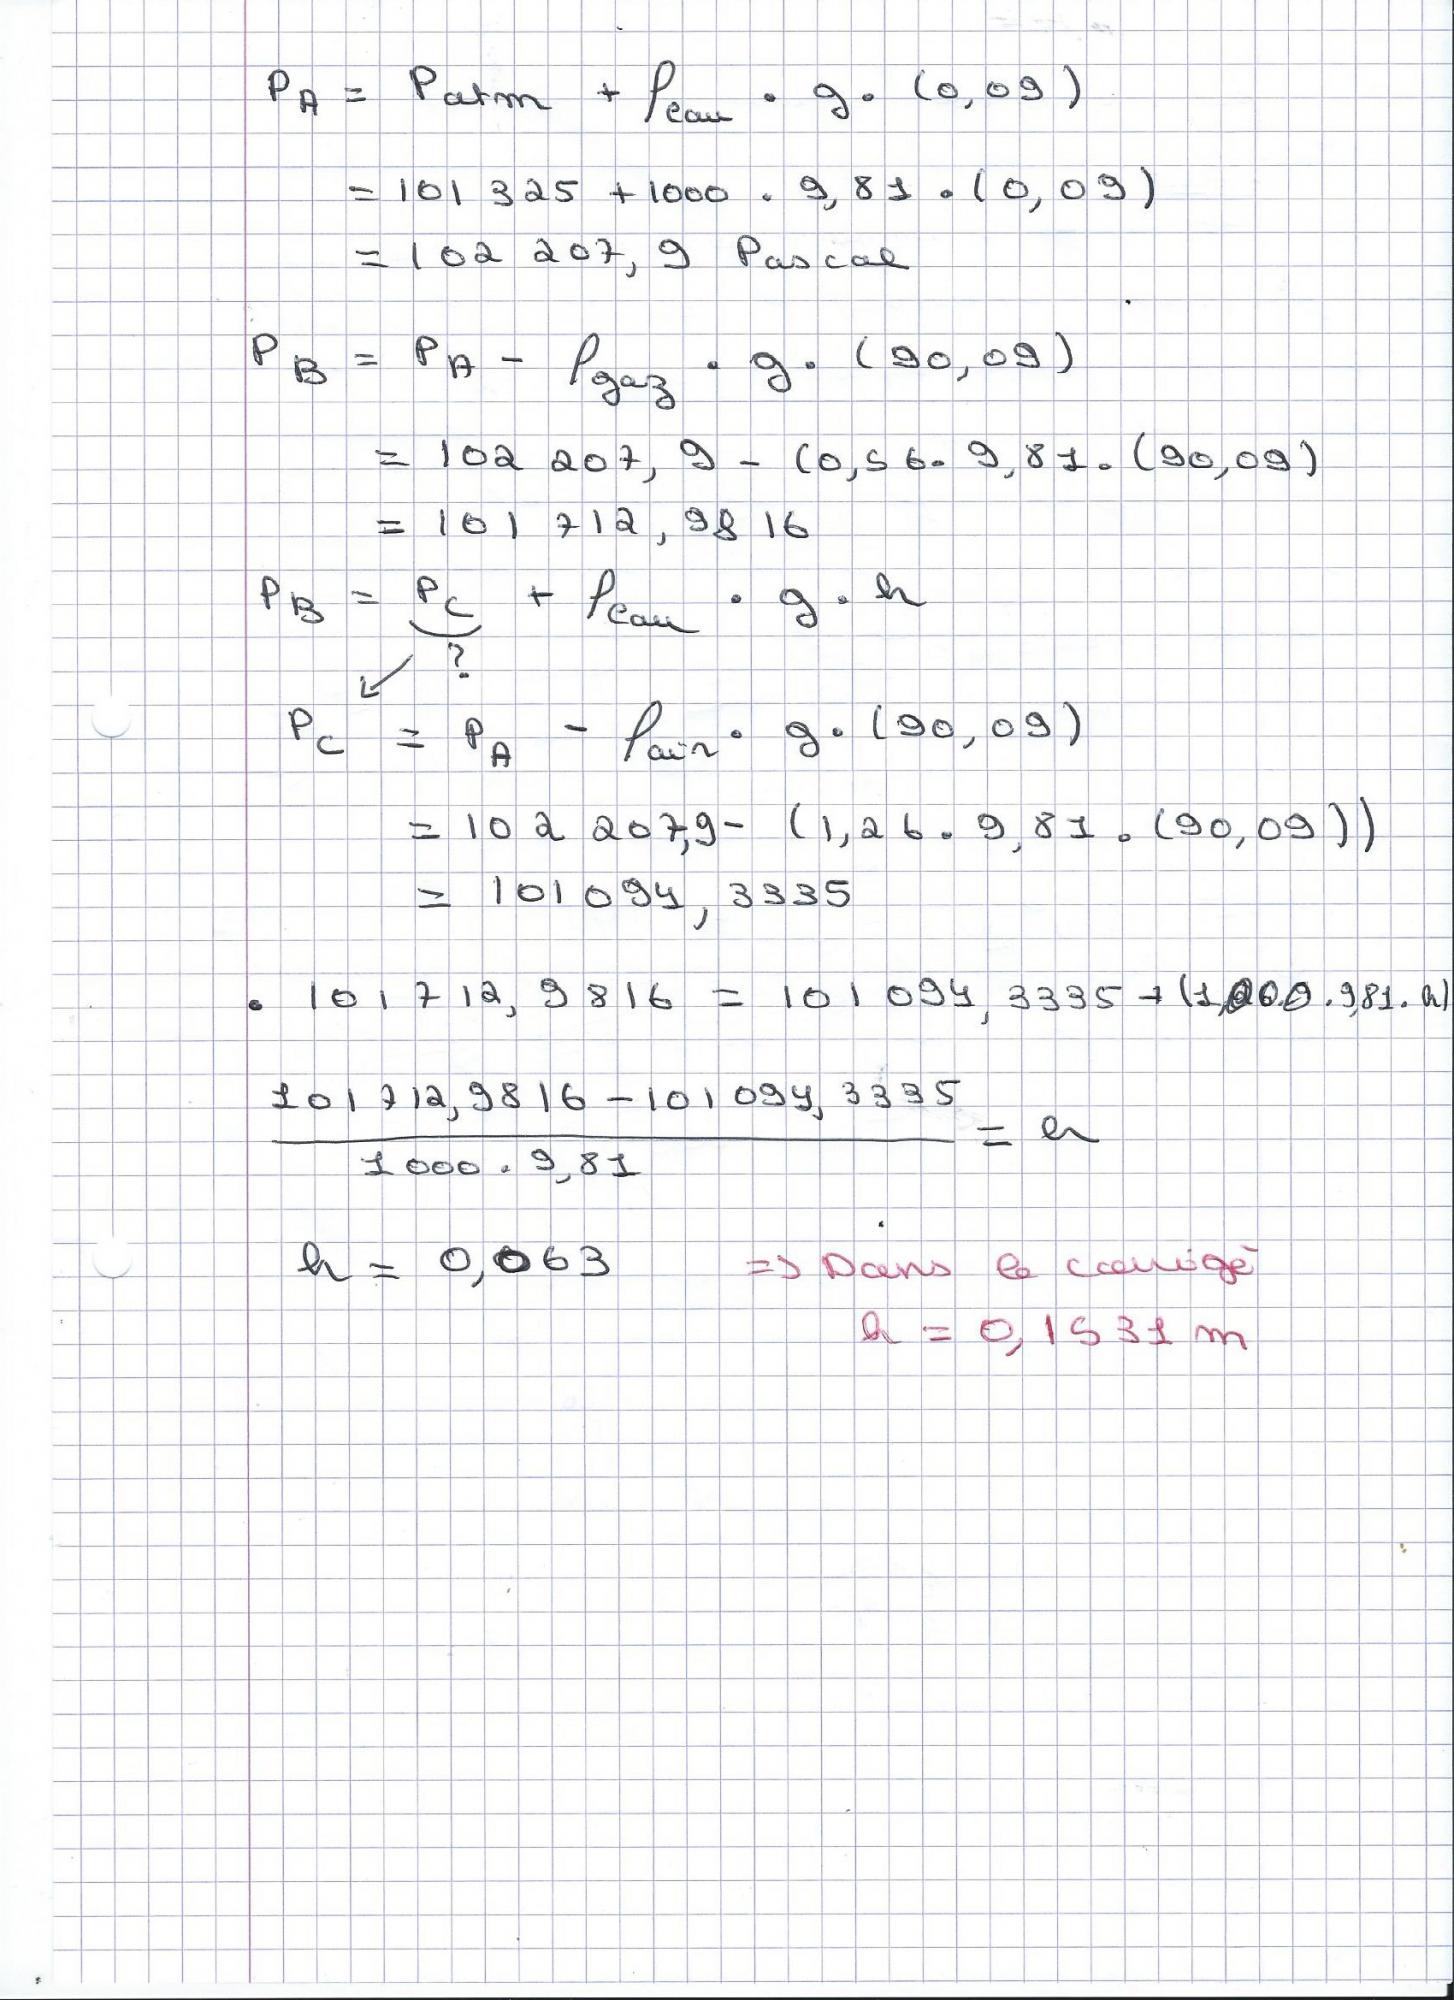 P_A = Patm + ρ_eau · g · (0,09)
= 101 325 + 1000 . 9,81 . (0,09)
= 102 207,9 Pascal
P_B = P_A - ρ_gaz · g · (90,09)
= 102 207,9 - (0,56 . 9,81 . (90,09)
= 101 712,9816
P_B = P_C + ρ_eau · g · h
?
P_C = P_A - ρ_air · g · (90,09)
= 102 207,9 - (1,26 . 9,81 . (90,09))
= 101 094,3335
· 101 712,9816 = 101 094,3335 + (1000 . 9,81 . h)
101 712,9816 - 101 094,3335
= h
1000 . 9,81
h = 0,063 => Dans le corrigé
h = 0,1531 m